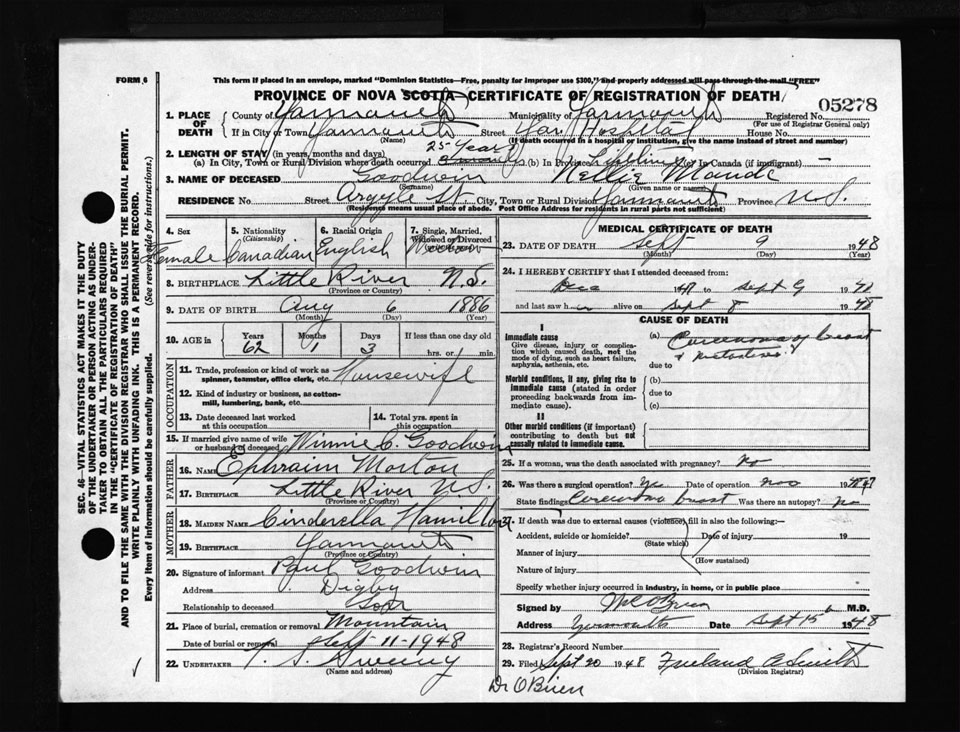 FORM 6
This form if placed in an envelope, marked "Dominion Statistics—Free, penalty for improper use $300," and properly addressed will pass through the mail "FREE"
PROVINCE OF NOVA SCOTIA—CERTIFICATE OF REGISTRATION OF DEATH
05278
1. PLACE OF DEATH County of Yarmouth Municipality of Yarmouth Registered No.
(For use of Registrar General only)
If in City or Town Yarmouth Street Yar. Hospital House No.
(Name) (If death occurred in a hospital or institution, give the name instead of street and number)
2. LENGTH OF STAY (in years, months and days) 25 Years
(a) In City, Town or Rural Division where death occurred (b) In Province Lifetime (c) In Canada (if immigrant) —
3. NAME OF DECEASED Goodwin Nellie Maude
(Surname) (Given name or names)
RESIDENCE No. Street Argyle St. City, Town or Rural Division Yarmouth Province N.S.
(Residence means usual place of abode. Post Office Address for residents in rural parts not sufficient)
4. Sex Female
5. Nationality (Citizenship) Canadian
6. Racial Origin English
7. Single, Married, Widowed or Divorced Widow
8. BIRTHPLACE Little River N.S.
(Province or Country)
9. DATE OF BIRTH Aug 6 1886
(Month) (Day) (Year)
10. AGE in Years 62 Months 1 Days 3 If less than one day old hrs. or min.
OCCUPATION
11. Trade, profession or kind of work as spinner, teamster, office clerk, etc. Housewife
12. Kind of industry or business, as cotton-mill, lumbering, bank, etc.
13. Date deceased last worked at this occupation
14. Total yrs. spent in this occupation
15. If married give name of wife or husband of deceased Winnie C. Goodwin
FATHER
16. NAME Ephraim Morton
17. BIRTHPLACE Little River N.S.
(Province or Country)
MOTHER
18. MAIDEN NAME Cinderella Hamilton
19. BIRTHPLACE Yarmouth
(Province or Country)
20. Signature of informant Paul Goodwin
Address Digby
Relationship to deceased Son
21. Place of burial, cremation or removal Mountain
Date of burial or removal Sept 11-1948
22. UNDERTAKER Sweeny
(Name and address)
MEDICAL CERTIFICATE OF DEATH
23. DATE OF DEATH Sept 9 1948
(Month) (Day) (Year)
24. I HEREBY CERTIFY that I attended deceased from:
Dec 1947 to Sept 9 1948
and last saw her alive on Sept 8 1948
CAUSE OF DEATH
I
Immediate cause
Give disease, injury or complication which caused death, not the mode of dying, such as heart failure, asphyxia, asthenia, etc.
(a) Carcinoma of breast
due to
Morbid conditions, if any, giving rise to immediate cause (stated in order proceeding backwards from immediate cause).
(b)
due to
(c)
II
Other morbid conditions (if important) contributing to death but not causally related to immediate cause.
25. If a woman, was the death associated with pregnancy? No
26. Was there a surgical operation? Yes Date of operation Nov 1947
State findings Carcinoma breast Was there an autopsy? No
27. If death was due to external causes (violence) fill in also the following:—
Accident, suicide or homicide? Date of injury 19
(State which)
Manner of injury
(How sustained)
Nature of injury
Specify whether injury occurred in industry, in home, or in public place
Signed by O'Brien M.D.
Address Yarmouth Date Sept 15 1948
28. Registrar's Record Number
29. Filed Sept 20 1948 Freeland A Smith
(Division Registrar)
Dr O'Brien
SEC. 46—VITAL STATISTICS ACT MAKES IT THE DUTY
OF THE UNDERTAKER OR PERSON ACTING AS UNDER-
TAKER TO OBTAIN ALL THE PARTICULARS REQUIRED
IN THE "CERTIFICATE OF REGISTRATION OF DEATH"
AND TO FILE THE SAME WITH THE DIVISION REGISTRAR WHO SHALL ISSUE THE BURIAL PERMIT.
WRITE PLAINLY WITH UNFADING INK. THIS IS A PERMANENT RECORD.
Every item of information should be carefully supplied. (See reverse side for instructions.)